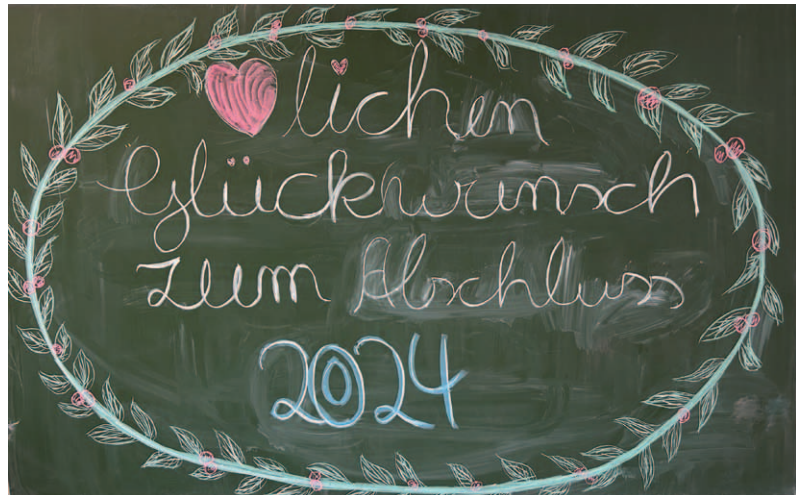 ♥lichen
Glückwunsch
zum Abschluss
2024